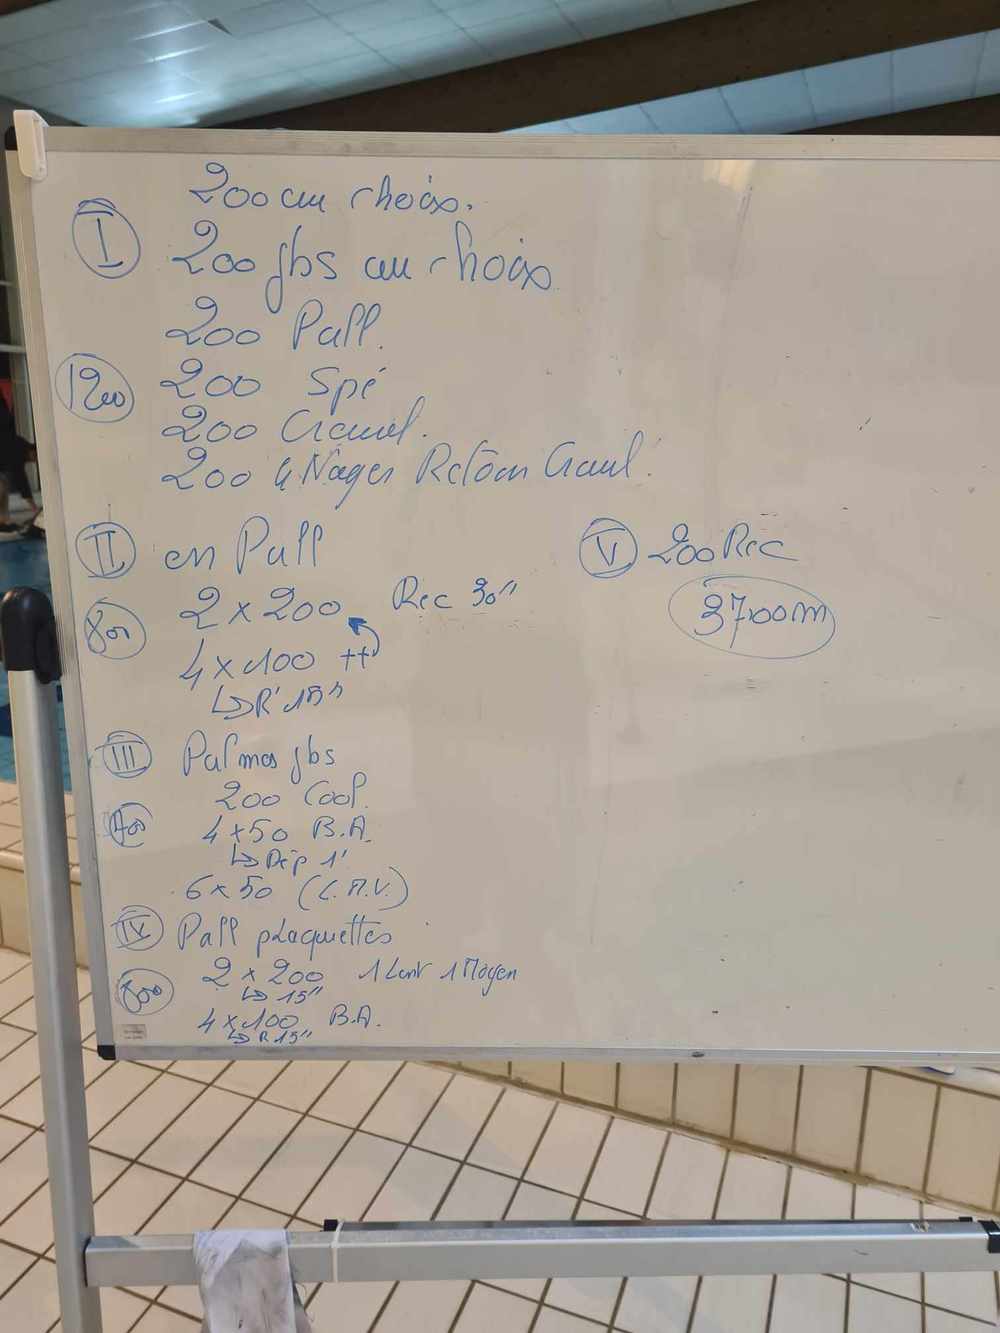 200 au choix.
I
200 jbs au choix
200 Pull.
1200
200 Spé
200 Crawl.
200 4 Nages Retour Crawl.
II en Pull
800
2 x 200 Rec 30"
4 x 100 ++
↳ R' 15"
III Palmes jbs
700
200 Cool.
4 x 50 B.A.
↳ Dép 1'
6 x 50 (L.M.V.)
IV Pull plaquettes
800
2 x 200 1 Lent 1 Moyen
↳ 15"
4 x 100 B.A.
↳ R 15"
V 200 Rec
3700m